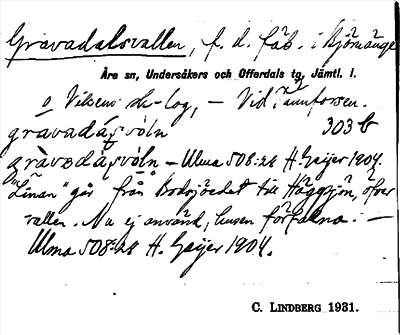 Gravadalsvallen, f. d. fäb. i Björnänge
Åre sn, Undersåkers och Offerdals tg, Jämtl. l.
o Vikens sk-log, – Vid ännforsen.
gravadáʂvöln 303 b
gràvɐdáʂvöln – Ulma 508:28 H. Geijer 1904.
"Linan" går från Bodsjöedet till Häggsjön, öfver
vallen. Nu ej använd, husen förfallna. –
Ulma 508:28 H. Geijer 1904.
C. LINDBERG 1931.